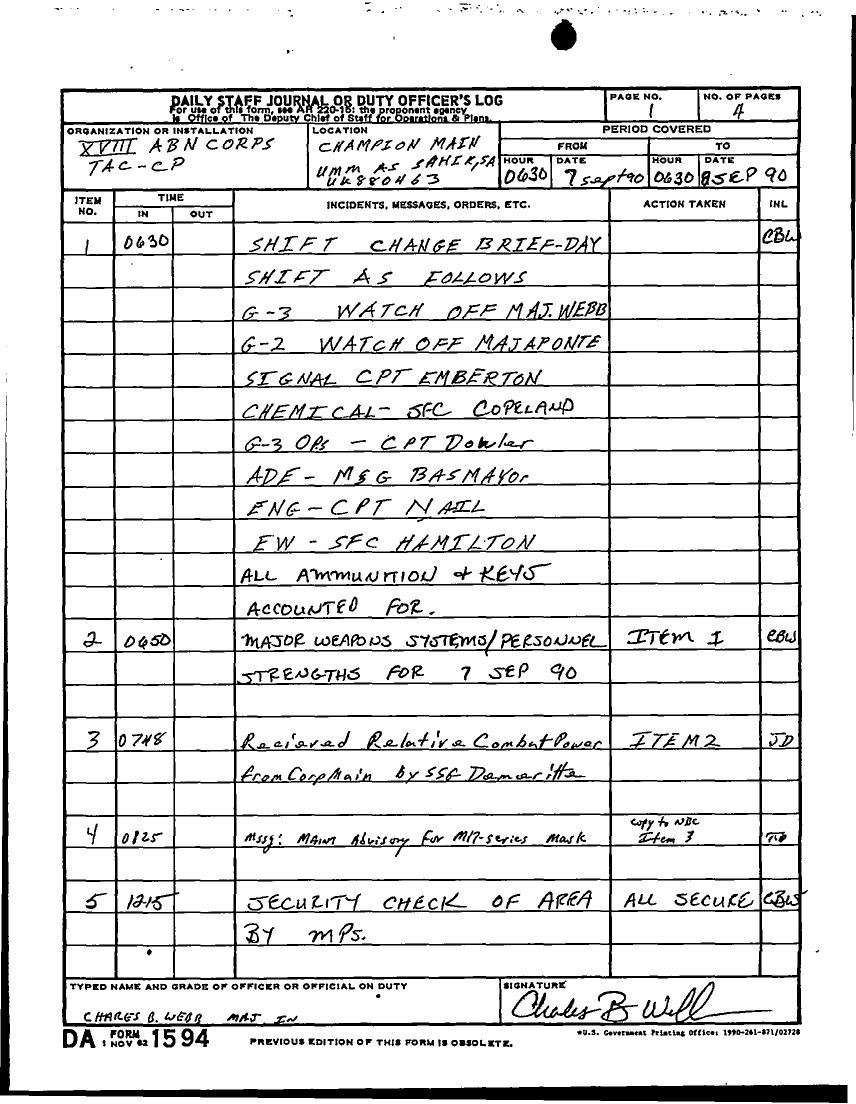 DAILY STAFF JOURNAL OR DUTY OFFICER'S LOG
For use of this form, see AR 220-15; the proponent agency
is Office of The Deputy Chief of Staff for Operations & Plans.
PAGE NO.
1
NO. OF PAGES
4
ORGANIZATION OR INSTALLATION
XVIII ABN CORPS
TAC-CP
LOCATION
CHAMPION MAIN
UMM AS SAHIK, SA
UK880463
PERIOD COVERED
FROM
TO
HOUR
DATE
HOUR
DATE
0630
7 sept 90
0630
8 SEP 90
ITEM NO.
TIME
IN
OUT
INCIDENTS, MESSAGES, ORDERS, ETC.
ACTION TAKEN
INL
1 0630 SHIFT CHANGE BRIEF-DAY CBW
SHIFT AS FOLLOWS
G-3 WATCH OFF MAJ. WEBB
G-2 WATCH OFF MAJ APONTE
SIGNAL CPT EMBERTON
CHEMICAL- SFC COPELAND
G-3 OPs - CPT Dowler
ADE - MSG BASMAYOr
ENG - CPT NAIL
EW - SFC HAMILTON
ALL AMMUNITION & KEYS
ACCOUNTED FOR.
2 0650 MAJOR WEAPONS SYSTEMS/PERSONNEL ITEM I CBW
STRENGTHS FOR 7 SEP 90
3 0748 Recieved Relative Combat Power ITEM 2 JD
from Corp Main by SSG
4 0825 Mssg: MAint Advisory For M17-series Mask
copy to NBC
Item 3
5 1215 SECURITY CHECK OF AREA ALL SECURE CBW
BY MPs.
TYPED NAME AND GRADE OF OFFICER OR OFFICIAL ON DUTY
CHARES B. WEBB MAJ, IN
SIGNATURE
Charles B Webb
DA FORM 1594
1 NOV 62
PREVIOUS EDITION OF THIS FORM IS OBSOLETE.
*U.S. Government Printing Office: 1990-261-871/02728